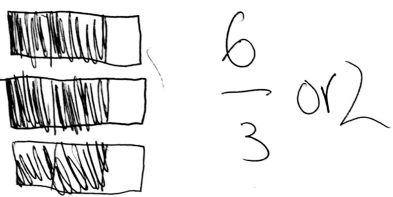 6/3 or 2